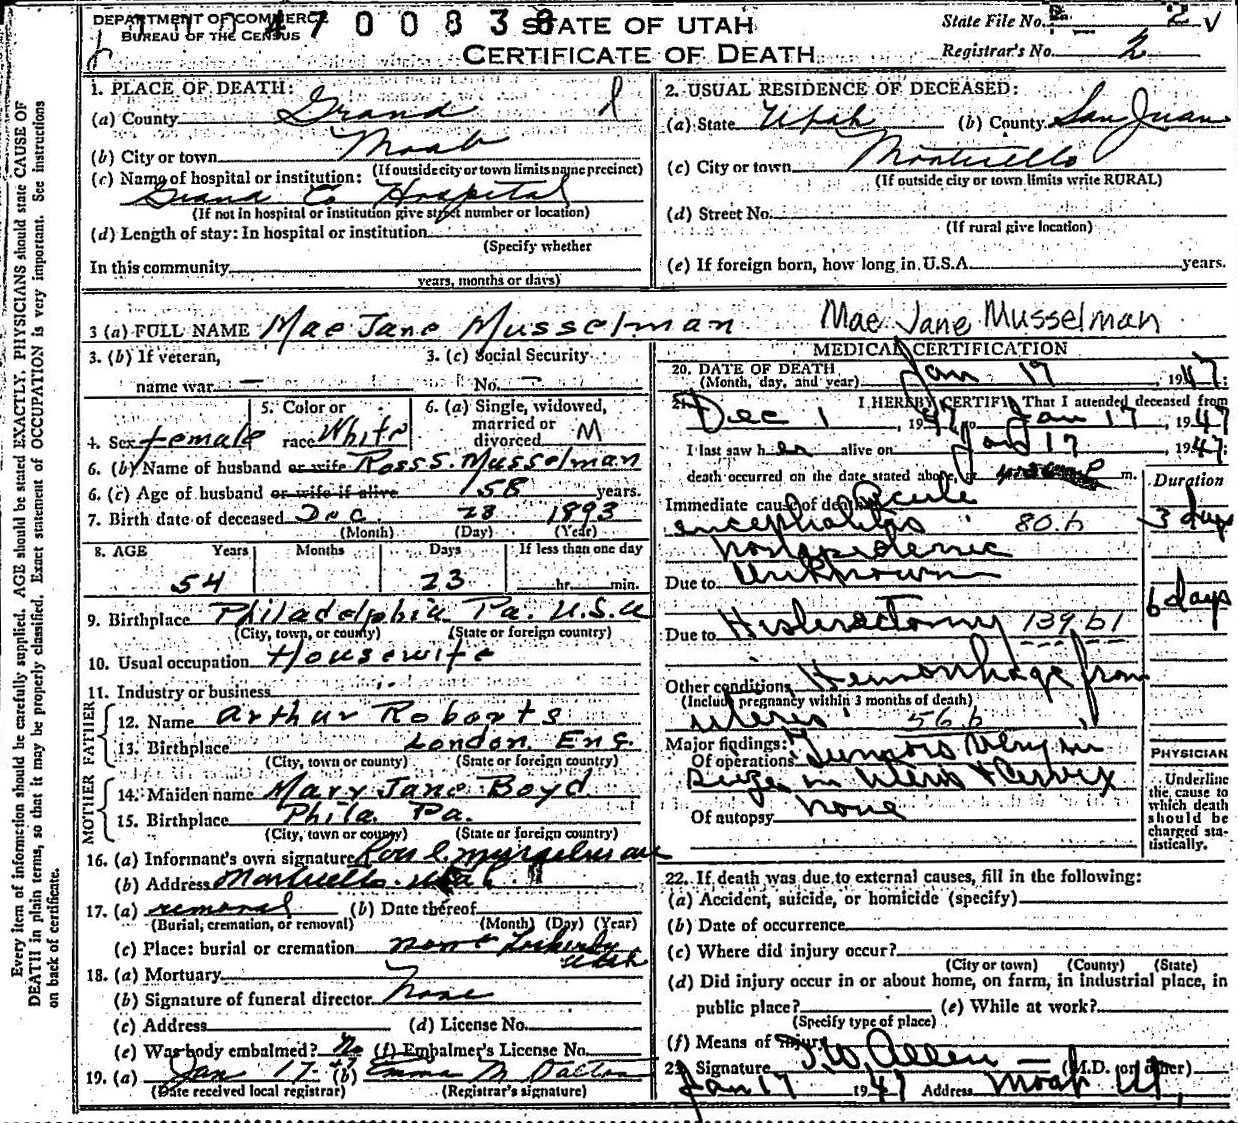 DEPARTMENT OF COMMERCE
BUREAU OF THE CENSUS
4700838
STATE OF UTAH
CERTIFICATE OF DEATH
State File No. 2
Registrar's No. 2
Every item of information should be carefully supplied. AGE should be stated EXACTLY. PHYSICIANS should state CAUSE OF
DEATH in plain terms, so that it may be properly classified. Exact statement of OCCUPATION is very important. See instructions
on back of certificate.
1. PLACE OF DEATH:
(a) County Grand
(b) City or town Moab
(If outside city or town limits name precinct)
(c) Name of hospital or institution:
Grand Co Hospital
(If not in hospital or institution give street number or location)
(d) Length of stay: In hospital or institution
(Specify whether
In this community
years, months or days)
2. USUAL RESIDENCE OF DECEASED:
(a) State Utah (b) County San Juan
(c) City or town Monticello
(If outside city or town limits write RURAL)
(d) Street No.
(If rural give location)
(e) If foreign born, how long in U.S.A. years.
3 (a) FULL NAME Mae Jane Musselman Mae Jane Musselman
3. (b) If veteran,
name war –
3. (c) Social Security
No. –
4. Sex female
5. Color or
race White
6. (a) Single, widowed,
married or
divorced M
6. (b) Name of husband or wife Ross S. Musselman
6. (c) Age of husband or wife if alive 58 years.
7. Birth date of deceased Dec. 28 1893
(Month) (Day) (Year)
8. AGE Years Months Days If less than one day
54 23 hr. min.
9. Birthplace Philadelphia Pa. U.S.A
(City, town, or county) (State or foreign country)
10. Usual occupation Housewife
11. Industry or business
FATHER
12. Name Arthur Robarts
13. Birthplace London Eng.
(City, town or county) (State or foreign country)
MOTHER
14. Maiden name Mary Jane Boyd
15. Birthplace Phila. Pa.
(City, town or county) (State or foreign country)
16. (a) Informant's own signature Ross S. Musselman
(b) Address Monticello Utah
17. (a) removal (b) Date thereof
(Burial, cremation, or removal) (Month) (Day) (Year)
(c) Place: burial or cremation
Utah
18. (a) Mortuary
(b) Signature of funeral director None
(c) Address (d) License No.
(e) Was body embalmed? No (f) Embalmer's License No.
19. (a) Jan 17-47 (b) Emma M Dalton
(Date received local registrar) (Registrar's signature)
MEDICAL CERTIFICATION
20. DATE OF DEATH
(Month, day, and year) Jan 17, 1947:
21. I HEREBY CERTIFY That I attended deceased from
Dec 1, 1947 to Jan 17, 1947
I last saw her alive on Jan 17 1947:
death occurred on the date stated above, at m.
Duration
Immediate cause of death Acute
encephalitis 80.b 3 days
nonepidemic
Due to Unknown
6 days
Due to Histerectomy 139.b1
Other conditions Hemorrhage from
(Include pregnancy within 3 months of death)
uterus 56b
Major findings:
Of operations Tumors
in Uterus & Cervix
Of autopsy none
PHYSICIAN
Underline
the cause to
which death
should be
charged sta-
tistically.
22. If death was due to external causes, fill in the following:
(a) Accident, suicide, or homicide (specify)
(b) Date of occurrence
(c) Where did injury occur?
(City or town) (County) (State)
(d) Did injury occur in or about home, on farm, in industrial place, in
public place? (e) While at work?
(Specify type of place)
(f) Means of injury
23. Signature I.W. Allen (M.D. or other)
Jan 17 1947 Address Moab Ut.